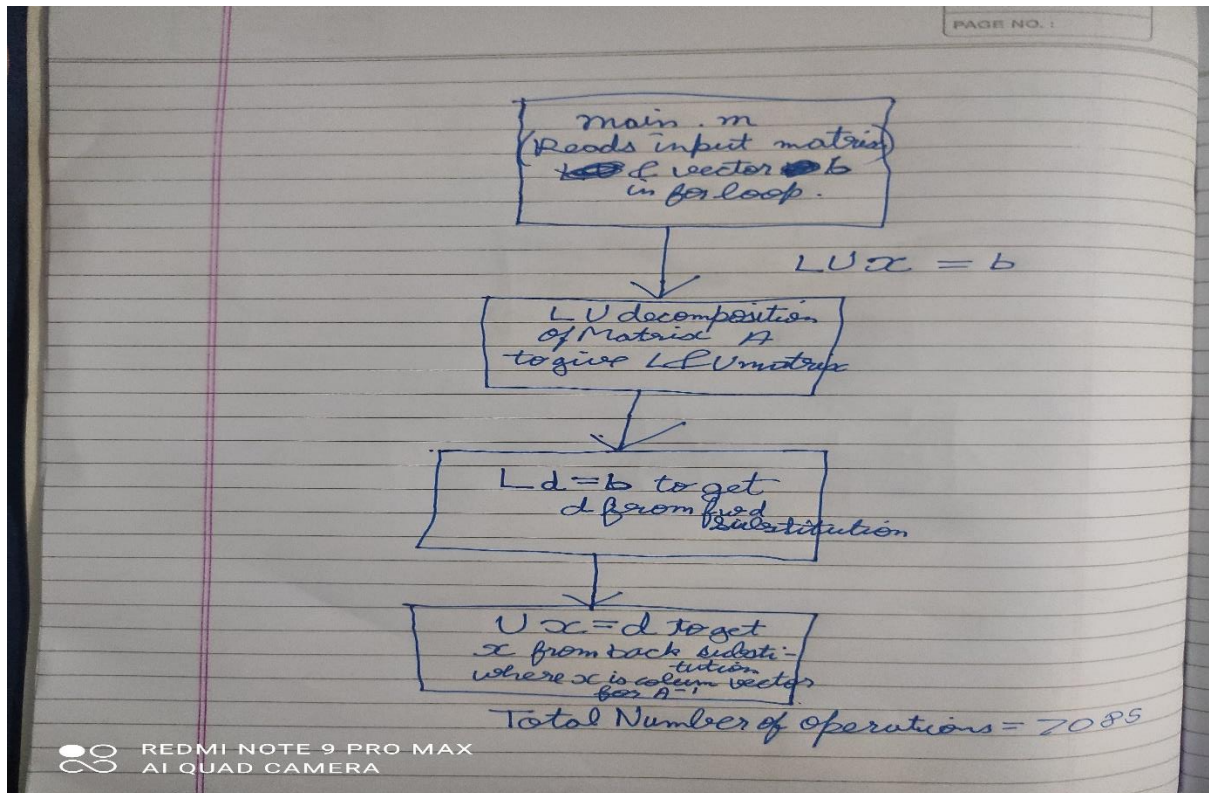 PAGE NO. :
main.m
(Reads input matrix)
& vector b
in for loop.
LUx = b
LU decomposition
of Matrix A
to give L & U matrix
Ld=b to get
d from fwd
substitution
Ux=d to get
x from back substi-
tution
where x is colum vector
for A⁻¹
Total Number of operations = 7085
REDMI NOTE 9 PRO MAX
AI QUAD CAMERA